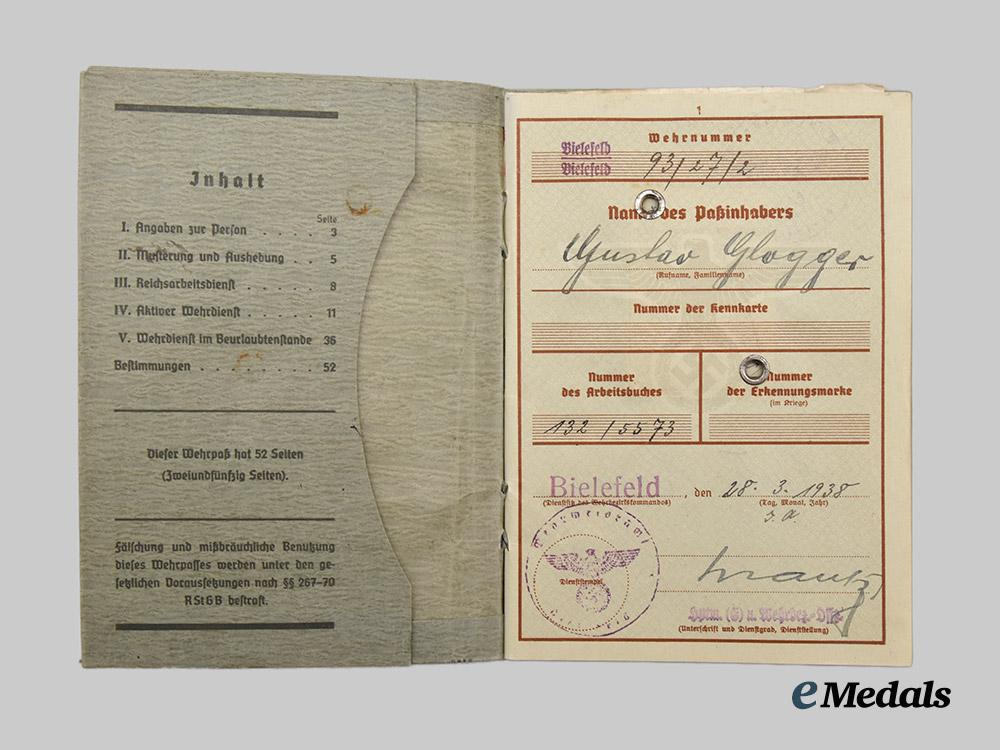 Inhalt
Seite
I. Angaben zur Person . . . . . 3
II. Musterung und Aushebung . . 5
III. Reichsarbeitsdienst . . . . . . 8
IV. Aktiver Wehrdienst . . . . . . 11
V. Wehrdienst im Beurlaubtenstande 36
Bestimmungen . . . . . . . . . 52
Dieser Wehrpaß hat 52 Seiten
(Zweiundfünfzig Seiten).
Fälschung und mißbräuchliche Benutzung
dieses Wehrpasses werden unter den ge-
setzlichen Voraussetzungen nach §§ 267-70
RStGB bestraft.
1
Wehrnummer
Bielefeld
Bielefeld
93/27/2
Name des Paßinhabers
Gustav Glogger
(Rufname, Familienname)
Nummer der Kennkarte
Nummer
des Arbeitsbuches
132 / 5573
Nummer
der Erkennungsmarke
(im Kriege)
Bielefeld, den 28. 3. 1938
(Dienstsitz des Wehrbezirkskommandos) (Tag, Monat, Jahr)
Dienststempel
Hptm. (E) u. Wehrbez.-Offz.
(Unterschrift und Dienstgrad, Dienststellung)
eMedals